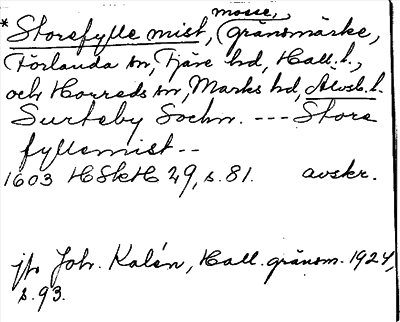 mosse,
*Storefylle mist, (gränsmärke,
Förlanda sn, Fjäre hd, Hall. l.,
och Horreds sn, Marks hd, Älvsb. l.
Surteby Sochn. --- Store
fyllemist --
1603 HSkH 29, s. 81. avskr.
jfr Joh. Kalén, Hall. gränsm. 1924,
s. 93.